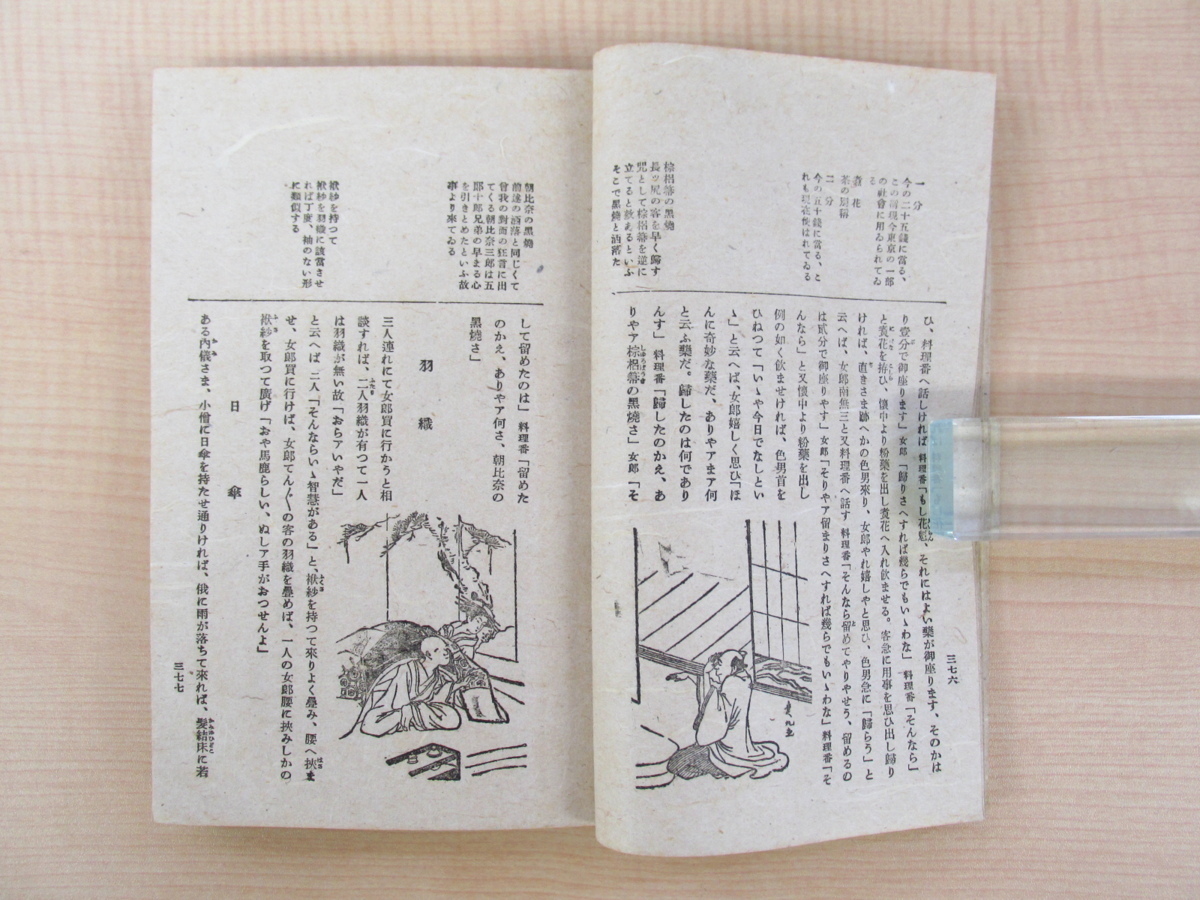 一分
今の二十五錢に當る、
この稱現今東京の一部
の社會に用ゐられてゐ
る
煮花
茶の別稱
二分
今の五十錢に當る、こ
れも現在使はれてゐる
棕梠箒の黑燒
長ッ尻の客を早く歸す
咒として棕梠箒を逆に
立てると效あるといふ
そこで黑燒と洒落た
三七六
ひ、料理番へ話しければ 料理番「もし花魁、それにはよい藥が御座ります、そのかは
り壹分で御座ります」女郎「歸りさへすれば幾らでもいゝわな」 料理番「そんなら」
と煮花を拵ひ、懷中より粉藥を出し煮花へ入れ飮ませる。客急に用事を思ひ出し歸り
ければ、直きさま跡へかの色男來り、女郎やれ嬉しやと思ひ、色男急に「歸らう」と
云へば、女郎南無三と又料理番へ話す 料理番「そんなら留めてやりやせう、留めるの
は貳分で御座りやす」女郎「そりやア留まりさへすれば幾らでもいゝわな」料理番「そ
んなら」と又懷中より粉藥を出し
例の如く飮ませければ、色男首を
ひねつて「いゝや今日でなしとい
ゝ」と云へば、女郎嬉しく思ひ「ほ
んに奇妙な藥だ、ありやアまア何
と云ふ藥だ。歸したのは何であり
んす」 料理番「歸したのかえ、あ
りやア棕梠箒の黑燒さ」女郎「そ
朝比奈の黑燒
前述の洒落と同じくて
曾我の對面の狂言に出
てくる朝比奈三郎は五
郎十郎兄弟の早まる心
を引きとめたといふ故
事より來てゐる
袱紗を持つて
袱紗を羽織に該當させ
れば丁度、袖のない形
に類似する
して留めたのは」 料理番「留めた
のかえ、ありやア何さ、朝比奈の
黑燒さ」
羽織
三人連れにて女郎買に行かうと相
談すれば、二人羽織が有つて一人
は羽織が無い故「おらアいやだ」
と云へば 二人「そんならいゝ智慧がある」と、袱紗を持つて來りよく疊み、腰へ挾ま
せ、女郎買に行けば、女郎てんく〵の客の羽織を疊めば、一人の女郎腰に挾みしかの
袱紗を取つて廣げ「おや馬鹿らしい、ぬしア手がおつせんよ」
日傘
ある內儀さま、小僧に日傘を持たせ通りければ、俄に雨が落ちて來れば、髮結床に若
三七七